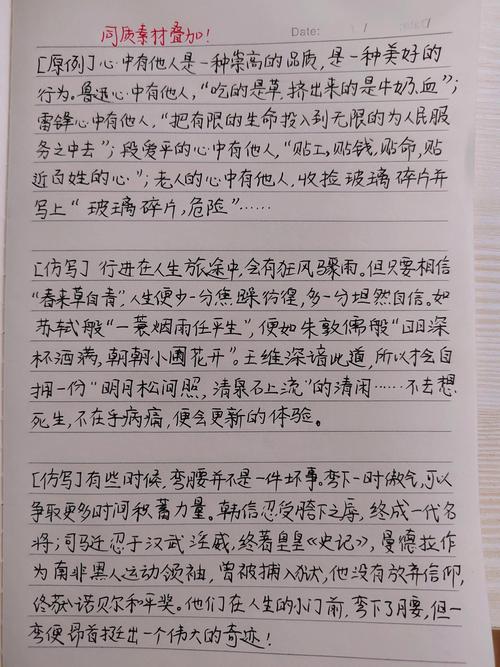 同质素材叠加！
Date:
[原例]心中有他人是一种崇高的品质,是一种美好的
行为。鲁迅心中有他人,“吃的是草,挤出来的是牛奶、血”;
雷锋心中有他人,“把有限的生命投入到无限的为人民服
务之中去”;段爱平的心中有他人,“贴工,贴钱,贴命,贴
近百姓的心”;老人的心中有他人,收捡玻璃碎片并
写上“玻璃碎片,危险”……
[仿写]行进在人生旅途中,会有狂风骤雨。但只要相信
“春来草自青”,人生便少一分焦躁彷徨,多一分坦然自信。如
苏轼般“一蓑烟雨任平生”,便如朱敦儒般“日日深
杯酒满,朝朝小圃花开”。王维深谙此道,所以才会自
拥一份“明月松间照,清泉石上流”的清闲……不去想
死生,不在乎病痛,便会更新的体验。
[仿写]有些时候,弯腰并不是一件坏事。弯下一时傲气,可以
争取更多时间积蓄力量。韩信忍受胯下之辱,终成一代名
将;司马迁忍于汉武淫威,终著皇皇《史记》,曼德拉作
为南非黑人运动领袖,曾被捕入狱,他没有放弃信仰,
终获诺贝尔和平奖。他们在人生的小门前,弯下了腰,但一
弯便昂首挺出一个伟大的奇迹!